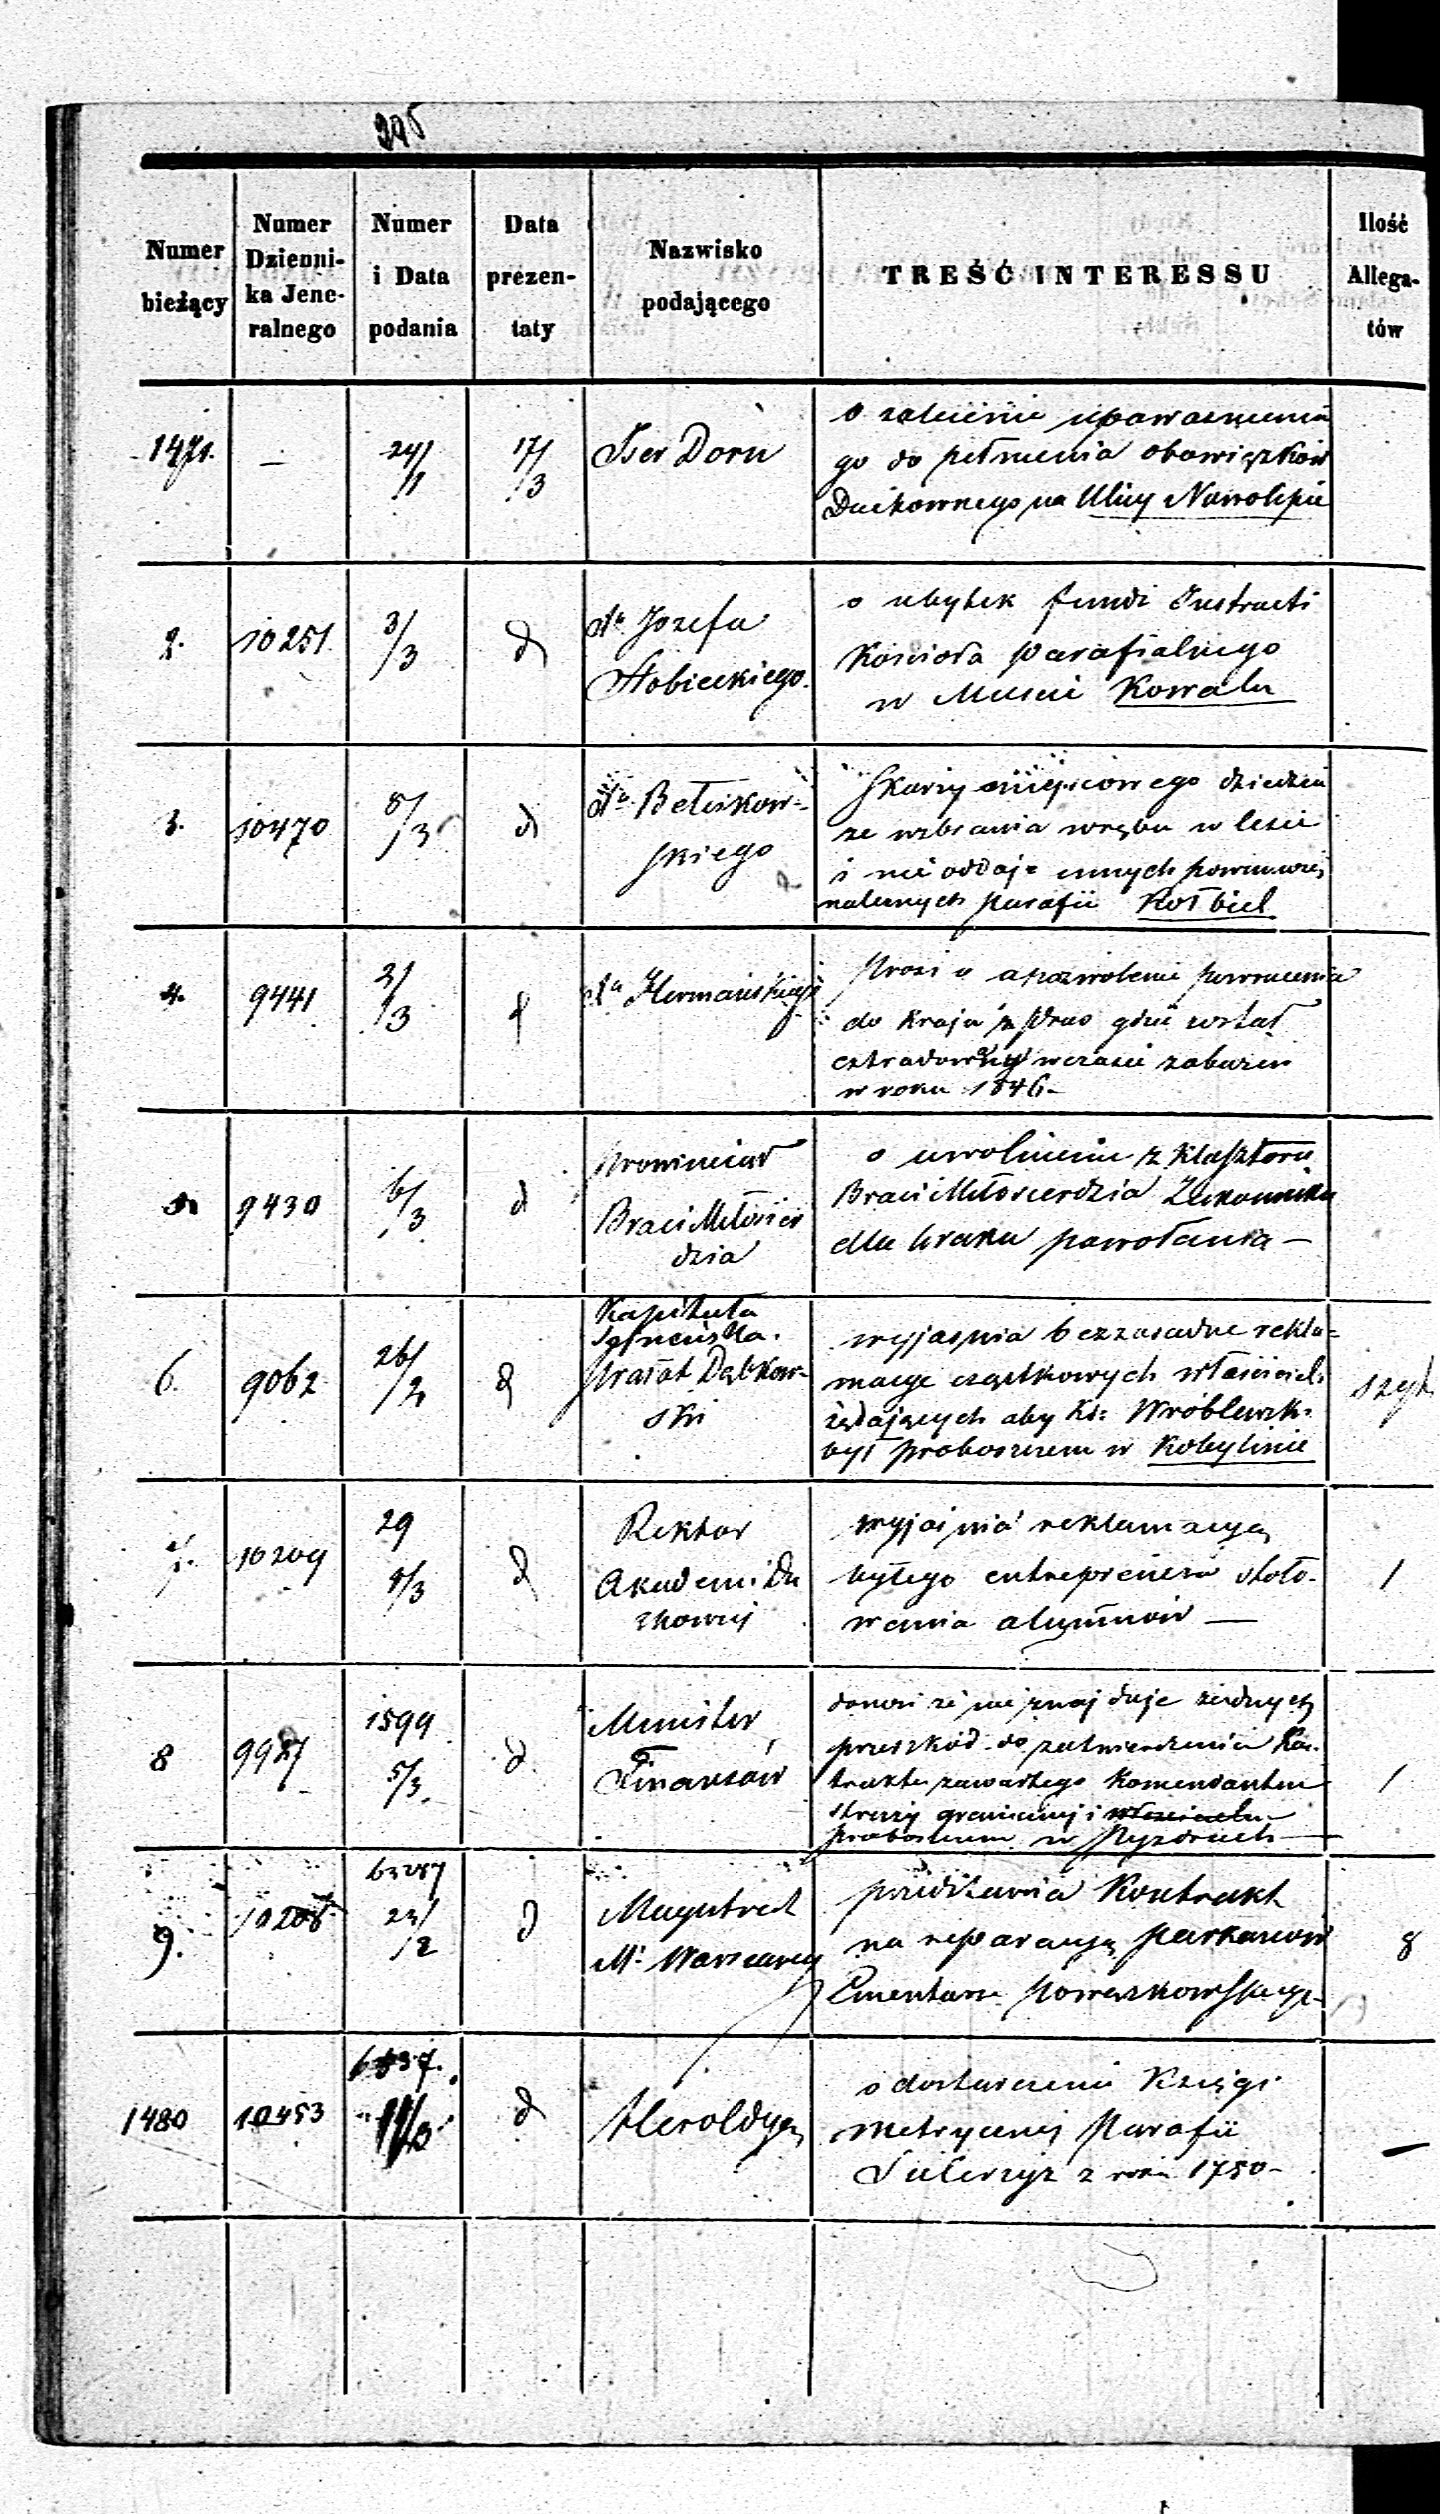 Numer bieżący
Numer Dzienni-ka Jene-ralnego
Numer i Data podania
Data prezen-taty
Nazwisko podającego
TREŚĆ INTERESSU
Ilość Allega-tów
1471. — 24/1 17/3 Iser Dorn
o zalecenie upoważnienia
go do pełnienia obowiązków
Duchownego na Ulicy Nowolipie
2. 10251. 3/3 d
Xa Jozefa
Stobieckiego.
o ubytek fundi Instructi
Kościoła parafialnego
w Mieście Kowalu
3. 10470 8/3 d
Xa Betcikow-
skiego
Skarży miejscowego dziedzica
że wzbrania wrębu w lesie
i nie oddaje innych
należnych parafii Kołbiel
4. 9441 2/3 d
Xa Hermańskiego
Prosi o pozwolenie powrócenia
do Kraju z Prus gdzie został
extradowany w czasie zaburzeń
w roku 1846 –
5 9430 6/3 d
Prowincjał
Braci Miłosier
dzia
o uwolnieniu z Klasztoru
Braci Miłosierdzia Zakonnika
dla braku powołania —
6. 9062 26/2 d
Kapituła
Sejneńska.
Prałat Dąbkow-
ski
wyjaśnia bezzasadne rekla-
macye cząstkowych właścicieli
żądających aby Ks: Wróblewsk.
był proboszczem w Kobylinie
szyt
7. 10209 29 8/3 d
Rektor
Akademi Du
chownej
wyjaśnia reklamacyą
byłego entreprenera stoło-
wania alumnów —
1
8 9927 1599 5/3. d
Minister
Finansów
donosi że nie znajduje żadnych
przeszkód do zatwierdzenia Kon-
traktu zawartego Komendantem
straży granicznej i
proboszczem w Pyzdrach —
1
9. 10208 63287 23/2 d
Magistrat
M. Warszawy
przedstawia Kontrakt
na reparacyą parkanów
Cmentarza Powązkowskiego
8
1480 10453 6537. d
Heroldya
o dostarczenie Księgi
Metrycznej Parafii
z roku 1750 –
—